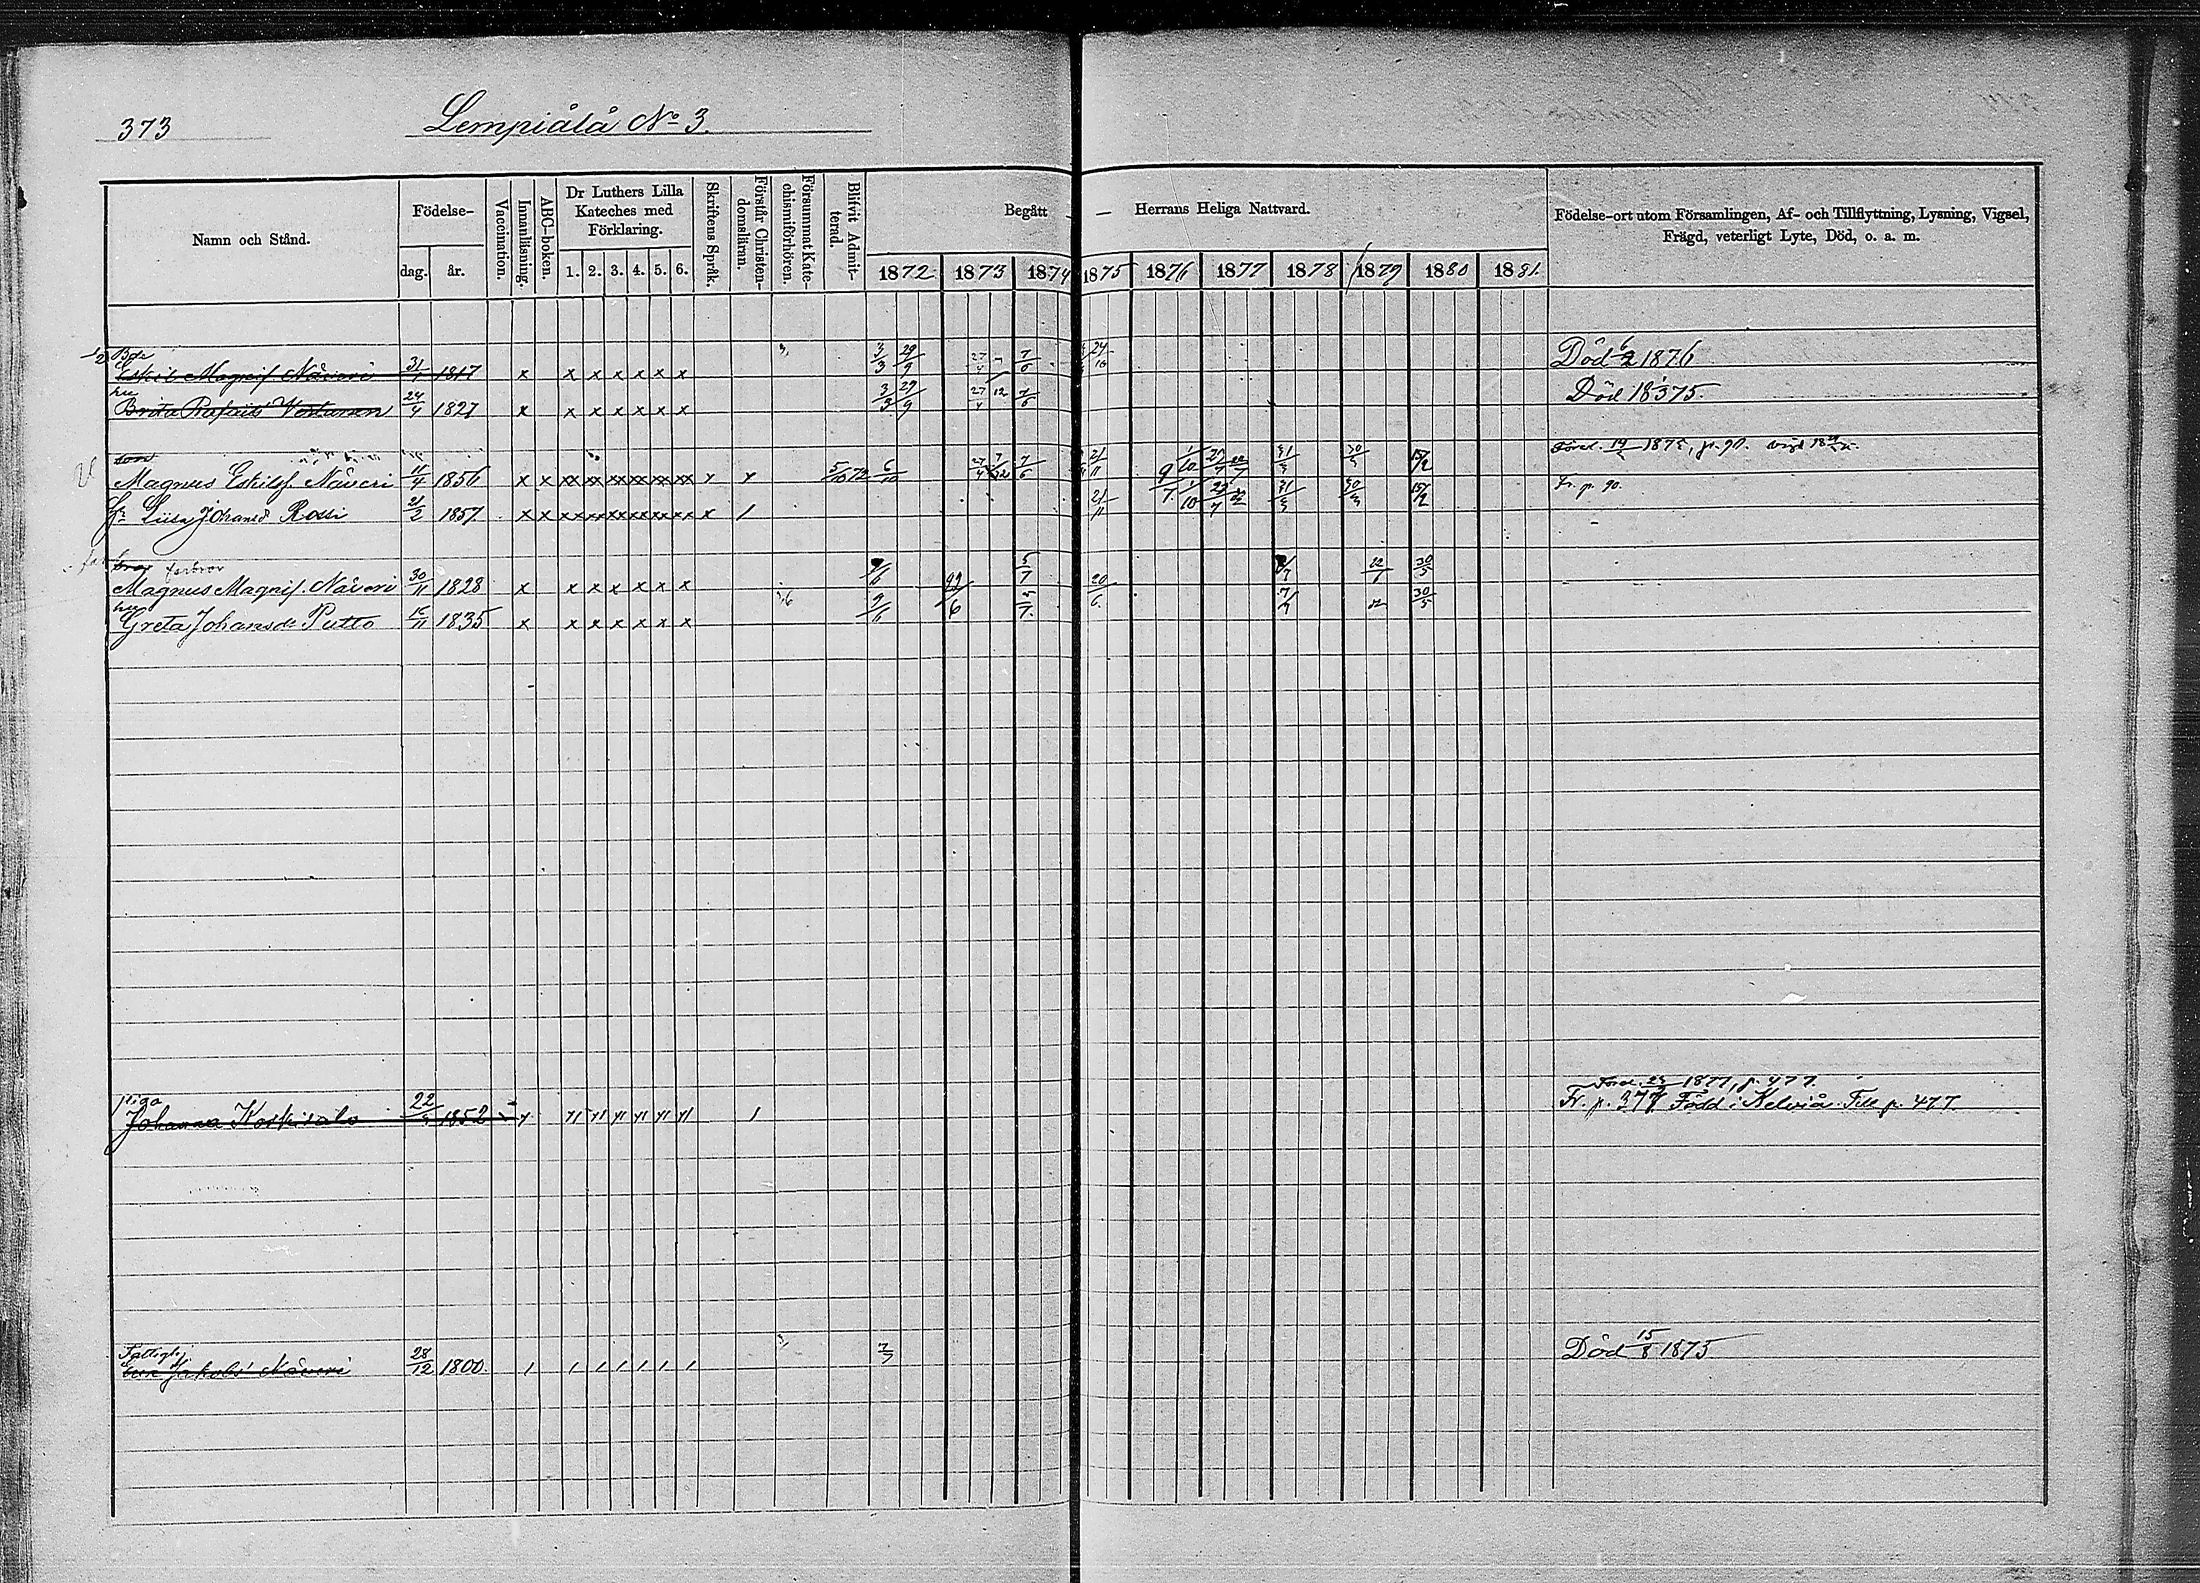 373
Lempiälä No 3.
Namn och Stånd.
Födelse-
dag. år.
Vaccination.
Innanläsning.
ABC-boken.
Dr Luthers Lilla
Kateches med
Förklaring.
1. 2. 3. 4. 5. 6.
Skriftens Språk.
Förstår Christen-
domsläran.
Försummat Kate-
chismiförhören.
Blifvit Admit-
terad.
Begått — Herrans Heliga Nattvard.
1872 1873 1874 1875 1876 1877 1878 1879 1880 1881
Födelse-ort utom Församlingen, Af- och Tillflyttning, Lysning, Vigsel,
Frägd, veterligt Lyte, Död, o. a. m.
1/2 Bde
Eskil Magnif. Näveri 31/1 1817 x x x x x x x 3/3 29/9 27/4 7/6 Död 6/2 1876
hu
Brita Rafaels Vertanen 24/4 1827 x x x x x x x 3/3 29/9 27/4 12 7/6 Död 18 1/3 75.
son
Magnus Eskilsf. Näveri 11/4 1856 x x xx xx xx xx xx xx x x 5/10 72 6/10 27/4 7/6 21/11 31/3 30/3 15/2
hr Liisa Johansd. Rossi 21/2 1857 x x xx xx xx xx xx xx x / 21/11 31/3 30/3 15/2 Fr. p. 90.
bror farbror
Magnus Magnif. Näveri 30/11 1828 x x x x x x x 5/7 20/6 7/7 22/6 30/5
hu
Greta Johansd. Putto 15/11 1835 x x x x x x x 9/6 5/7 7/7 30/5
piga
Johanna Koskisalo 22/5 1852 Fr. p. 377 Född i Kelviå. Till p. 477.
Fattighj.
Jakobsd Näveri 28/12 1800. / / / / / / / Död 15/8 1873